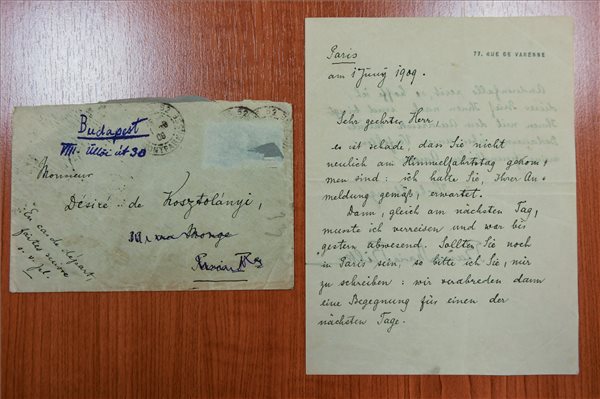 Budapest
VIII. Üllői út 30
Monsieur
Désiré de Kosztolányi,
rue Monge
Paris
En cas de départ
faites suivre
s. v. pl.
77, RUE DE VARENNE
Paris
am 1 Juny 1909.
Sehr geehrter Herr,
es ist schade, dass Sie nicht
neulich am Himmelfahrtstag gekom-
men sind: ich hatte Sie, Ihrer An-
meldung gemäß, erwartet.
Dann, gleich am nächsten Tag,
musste ich verreisen und war bis
gestern abwesend. Sollten Sie noch
in Paris sein, so bitte ich Sie, mir
zu schreiben: wir verabreden dann
eine Begegnung für einen der
nächsten Tage.